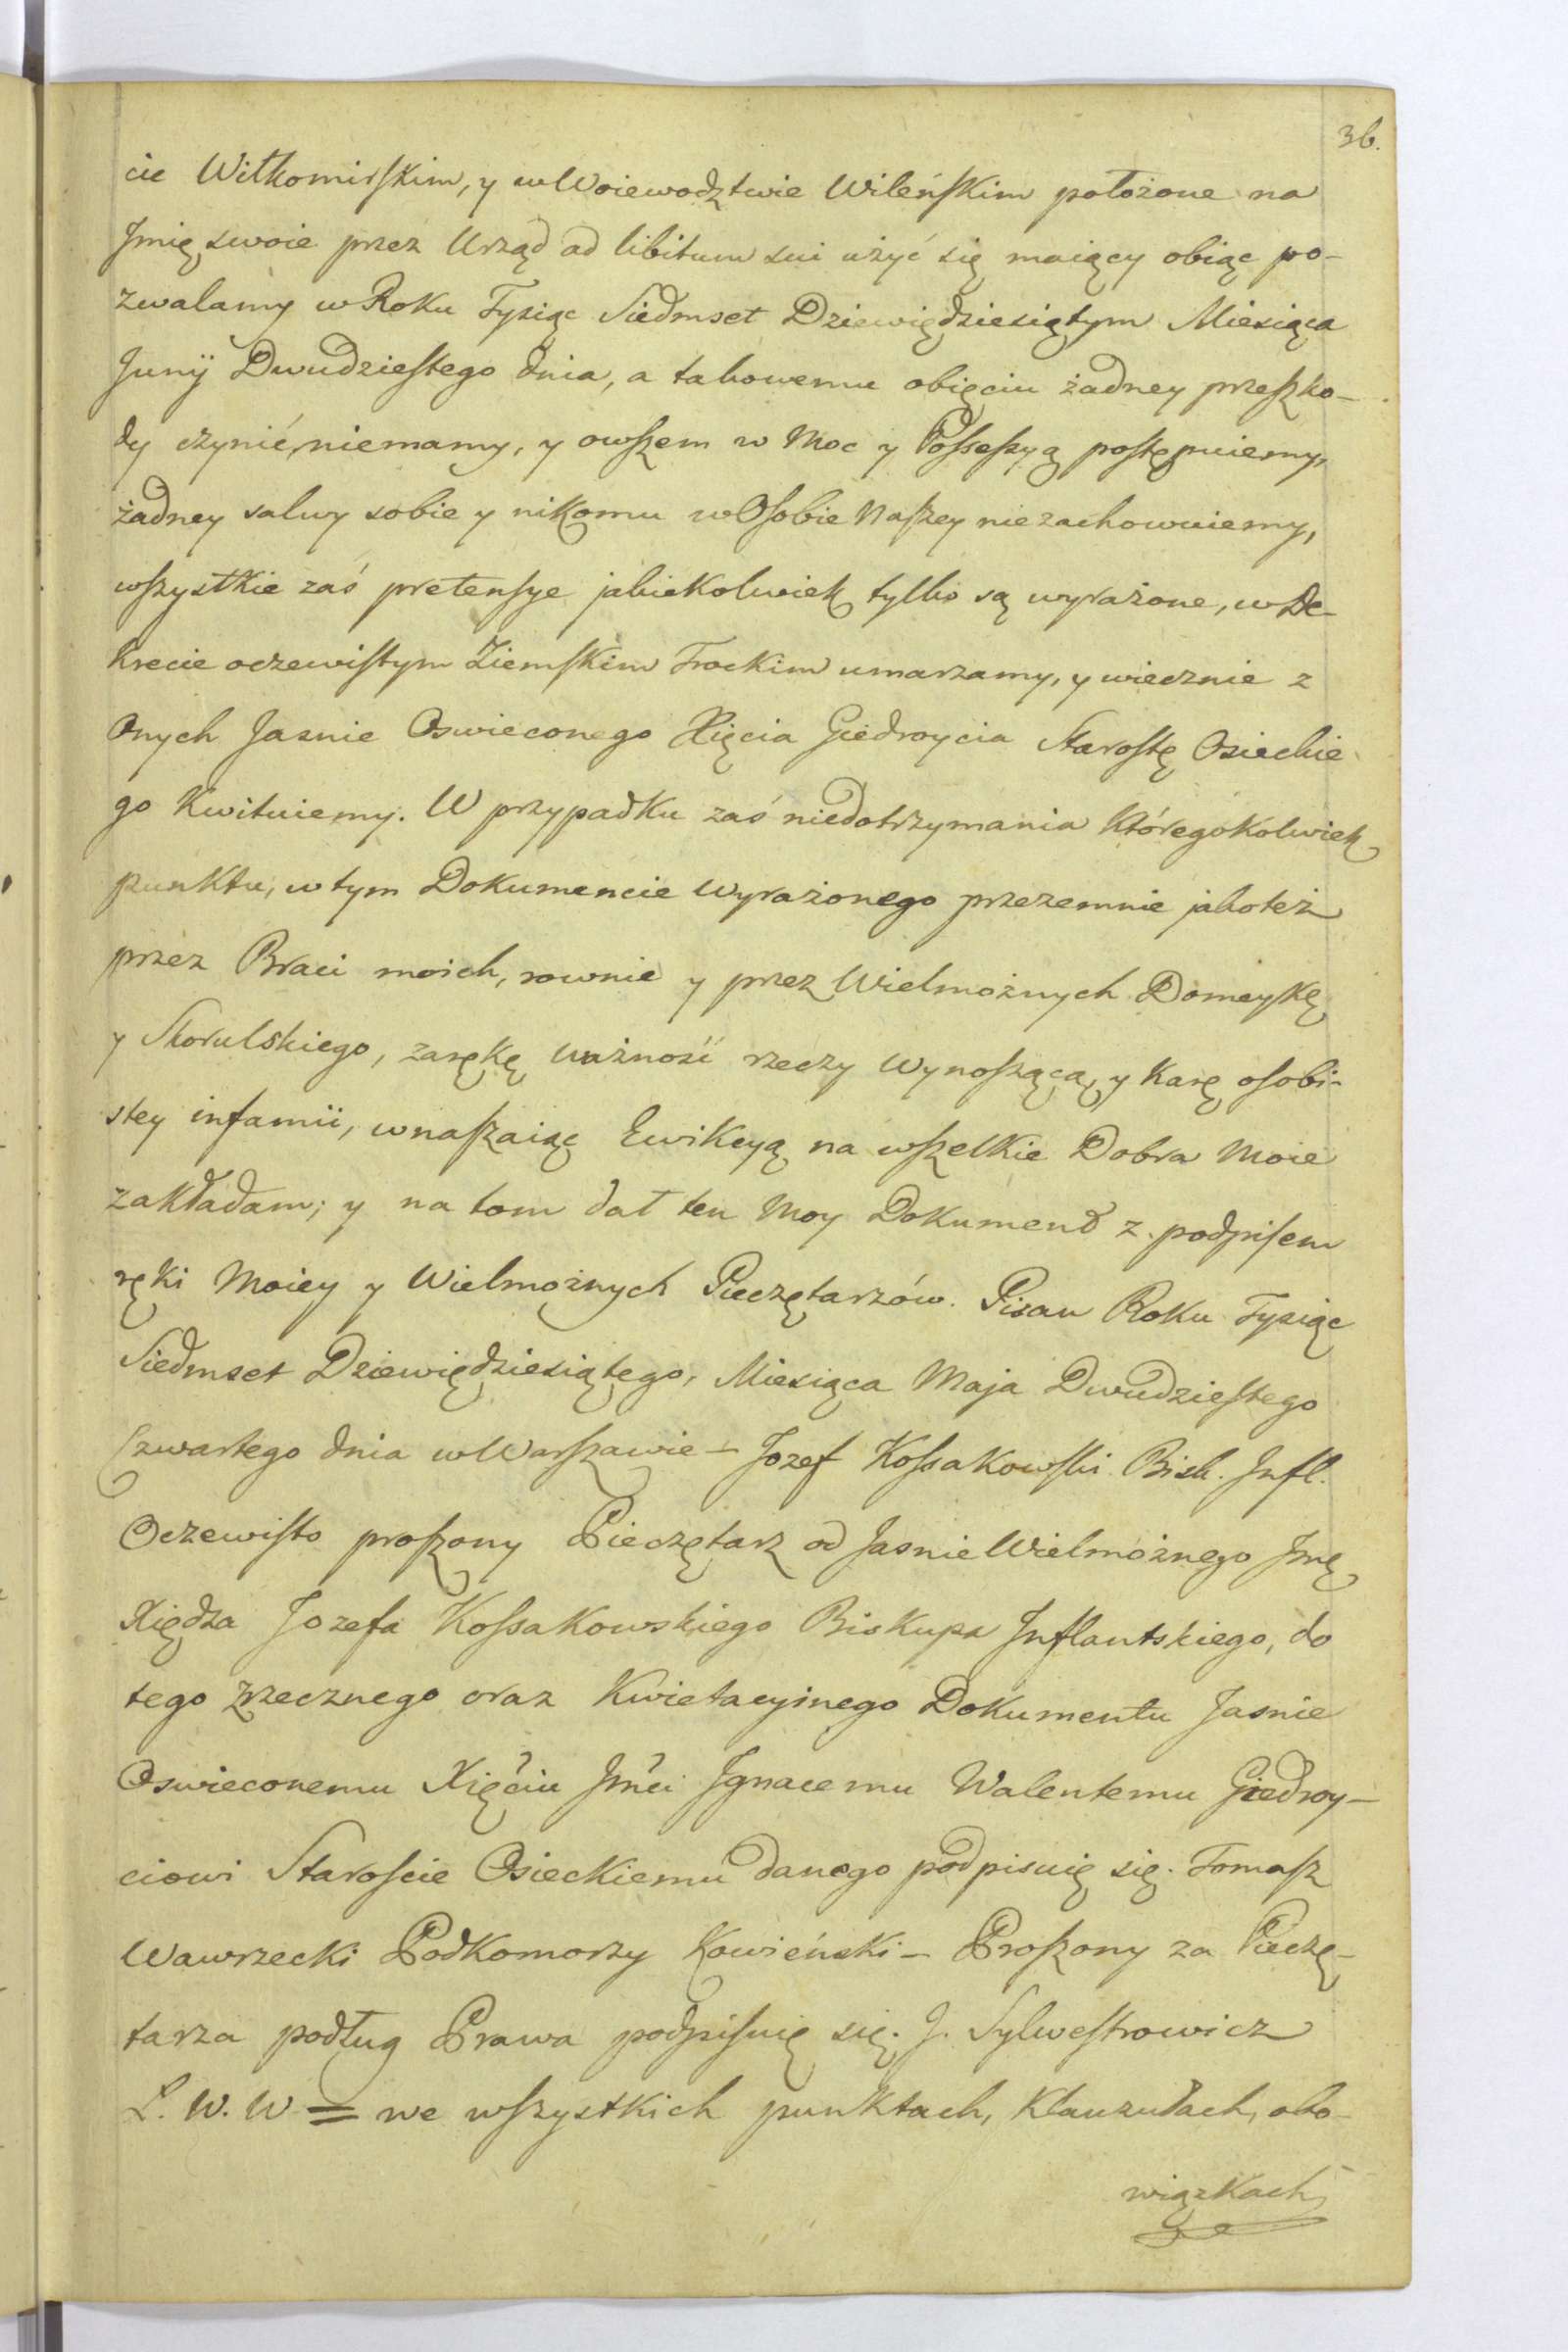 36.
cie Wiłkomirſkim, y w Woiewodztwie Wileńſkim położone na
Jmię swoie przez Urząd ad libitum sui użyć się maiący obiąc po-
zwalamy w Roku Tysiąc Siedmset Dziewiędziesiątym Miesiąca
Junij Dwudzieſtego dnia, a takowemu obięciu żadney przeſzko-
dy czynić niemamy, y owſzem w Moc y Poſseſsyą poſtępuiemy,
żadney salwy sobie y nikomu w Oſobie Naſzey niezachowuiemy,
wſzystkie zaś pretenſye jakiekolwiek tylko są wyrażone, w De-
krecie oczewiſtym Ziemſkim Trockim umarzamy, y wiecznie z
Onych Jasnie Oswieconego Xięcia Giedroycia Staroſtę Osieckie-
go Kwituiemy. W przypadku zaś niedotrzymania któregokolwiek
punktu, w tym Dokumencie wyrażonego przezemnie jakoteż
przez Braci moich, rownie y przez Wielmożnych Domeykę
y Skorulskiego, zarękę ważność rzeczy wynoſzącą, y karę oſobi-
stey infamii, wnaſzaiąc Ewikcyą na wſzelkie Dobra Moie
zakładam; y na tom dał ten Moy Dokument z podpiſem
ręki Moiey y Wielmożnych Pieczętarzów. Pisan Roku Tysiąc
Siedmset Dziewiędziesiątego, Miesiąca Maja Dwudzieſtego
Czwartego dnia w Warſzawie – Jozef Koſsakowſki Bisk. Jnfl.
Oczewiſto proſzony Pieczętarz od Jasnie Wielmożnego Jmę
Xiędza Jozefa Koſsakowskiego Biskupa Jnflantskiego, do
tego zrzecznego oraz Kwietacyinego Dokumentu Jasnie
Oswieconemu Xięciu Jmci Jgnacemu Walentemu Giedroy-
ciowi Staroſcie Osieckiemu danego podpisuię się. Tomaſz
Wawrzecki Podkomorzy Kowieński – Proſzony za Pieczę-
tarza podług Prawa podpiſuię się. J. Sylweſtrowicz
L. W. W = we wſzystkich punktach, Klauzułach, obo-
wiązkach